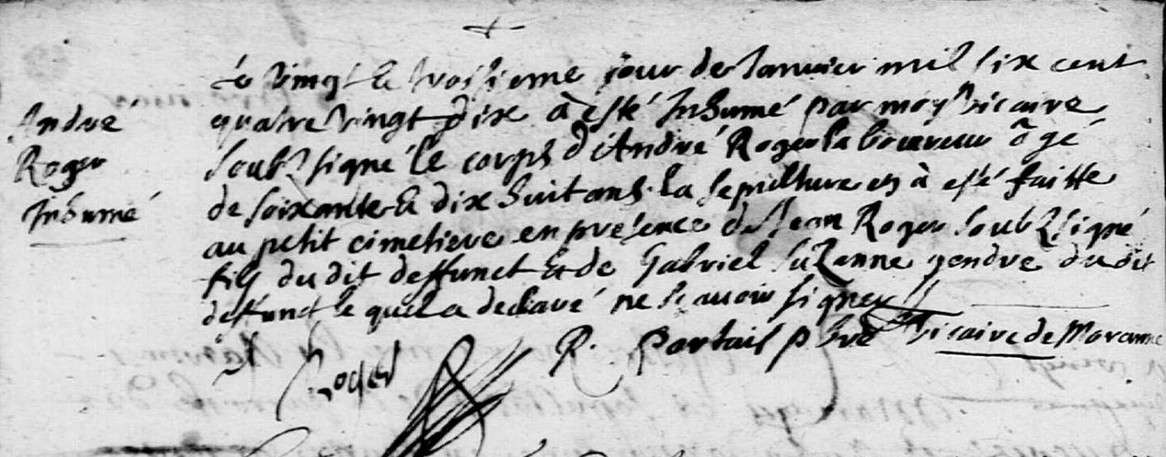 Le vingt & troisieme jour de Janvier mil six cent
André
quatre vingt dix à esté Inhumé par moy vicaire
Roger
soubzsigné le corps d'André Roger laboureur agé
Inhumé
de soixante & dix huit ans. la sepulture en à esté faitte
au petit cimetiere en presence de Jean Roger soubzsigné
fils du dit deffunct & de Gabriel suzanne gendre dudit
deffunct le quel a declaré ne scavoir signer
Roger R. Portail pbre Vicaire de Moranne